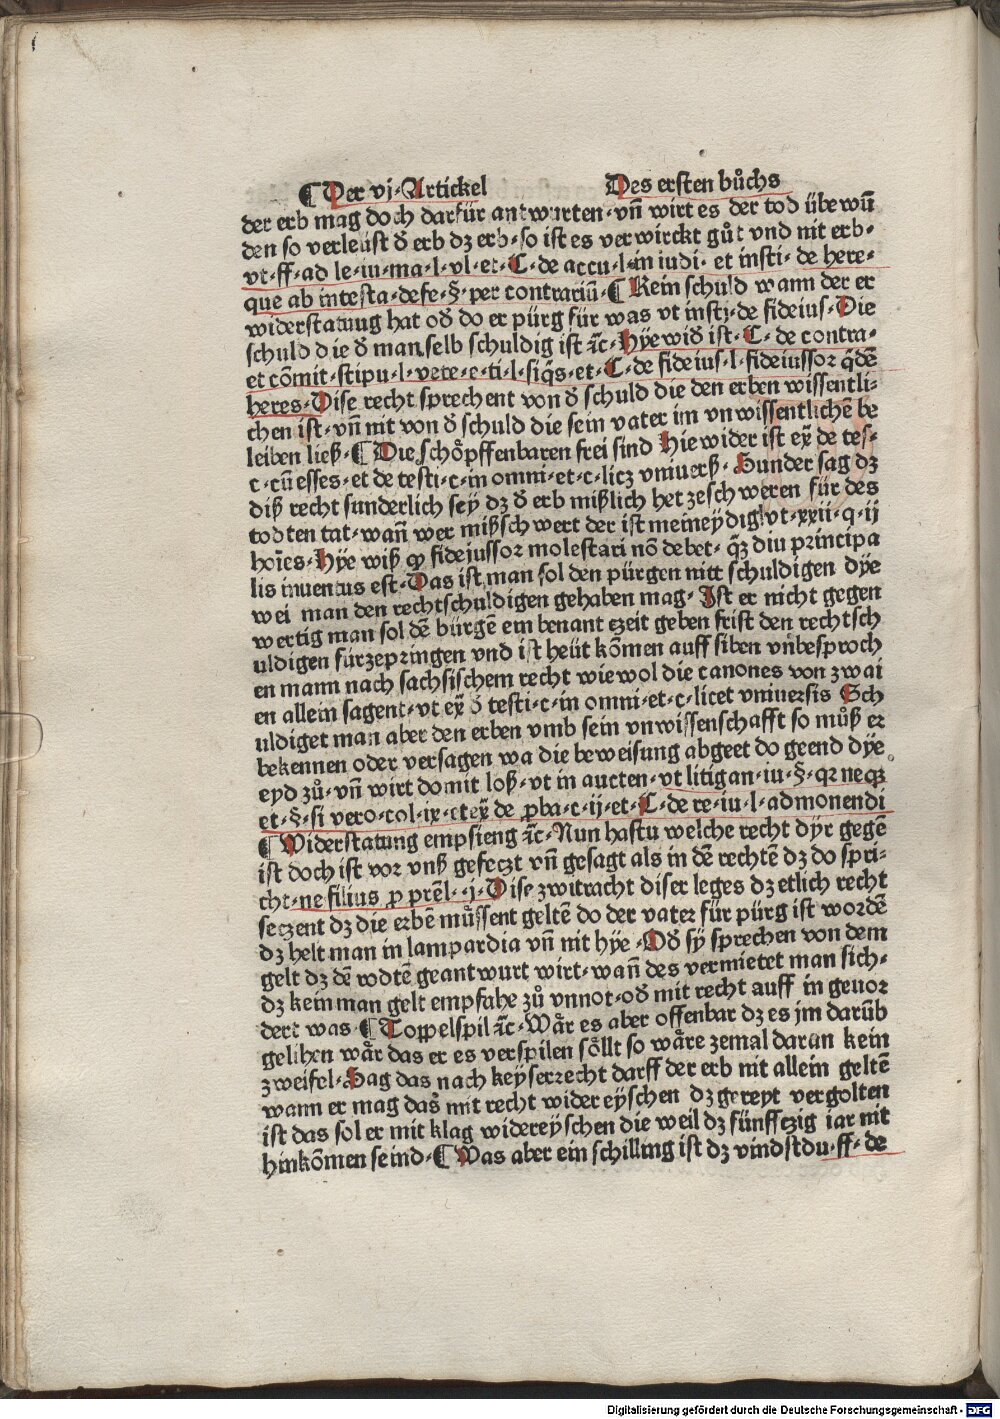 ¶ Der vj·Artickel Des ersten bůchs
der erb mag doch darfür antwurten·vñ wirt es der tod übewũ
den so verleüst ð erb dz erb·so ist es verwirckt gůt vnd nit erb·
vt·ff·ad le·iu·ma·l·vl·et·C·de accu·l·in iudi·et insti·de here·
que ab intesta·defe·§·per contrariũ·¶ Kein schuld wann der er
widerstatnug hat oð do er pürg für was vt insti·de fideius·Die
schuld die ð man selb schuldig ist ꝛc̃·Hÿe wið ist·C·de contra·
et cõmit·stipu·l·vete·e·ti·l·siq̃s·et·C·de fideius·l·fideiussor q̃dẽ
heres·Dise recht sprechent von ð schuld die den erben wissentli⸗
chen ist·vñ nit von ð schuld die sein vater im vnwissentlichẽ be
leiben ließ·¶ Die schöpffenbaren frei sind Hie wider ist ex̃ de tes⸗
t·cũ esses·et de testi·c·in omni·et·c·licz vniuerß·Sunder sag dz
diß recht sunderlich sey dz ð erb mißlich het ze schweren für des
todten tat·wañ wer mißschwert der ist meineydig vt·xxii·q·ij
hoĩes·Hÿe wiß ꝙ fideiussor molestari nõ debet·q̃ʒ diu principa
lis inuentus est·Das ist man sol den pürgen nitt schuldigen dÿe
wei man den rechtschuldigen gehaben mag·Ist er nicht gegen
wertig man sol dẽ bürgẽ ein benant czeit geben frist den rechtsch
uldigen fürzepringen vnd ist heüt kõmen auff siben vn̊besproch
en mann nach sachsischem recht wiewol die canones von zwai
en allein sagent·vt ex̃ ð testi·c·in omni·et·c·licet vniuersis Sch
uldiget man aber den erben vmb sein vnwissenschafft so můß er
bekennen oder versagen wa die beweisung abgeet do geend dÿe
eyd zů·vñ wirt domit loß·vt in aucten·vt litigan·iu·§·qꝛ neqꝫ
et·§·si vero·col·ix·et ex̃ de ꝓba·c·ij·et·C·de re·iu·l·admonendi
¶ Widerstatung empfieng ꝛc̃·Nun hastu welche recht dyr gegẽ
ist doch ist vor vnß gesetzt vñ gesagt als in dẽ rechtẽ dz do spri⸗
cht·ne filius ꝓ prẽ l··j·Dise zwitracht diser leges dz etlich recht
setzent dz die erbẽ můssent geltẽ do der vater für pürg ist wordẽ
dz helt man in lampardia vñ nit hÿe·Oð sÿ sprechen von dem
gelt dz dẽ todtẽ geantwurt wirt·wañ des vermietet man sich·
dz kein man gelt empfahe zů vnnot·oð mit recht auff in geuor
dert was·¶ Toppelspil ꝛc̃·Wär es aber offenbar dz es jm darũb
gelihen wär das er es verspilen söllt so wäre zemal daran kein
zweifel·Sag das nach keyserrecht darff der erb nit allein geltẽ
wann er mag das mit recht wider eyschen dz gereyt vergolten
ist das sol er mit klag widereyschen die weil dz fünfftzig iar nit
hinkõmen seind·¶ Was aber ein schilling ist dz vindstdu·ff·de
Digitalisierung gefördert durch die Deutsche Forschungsgemeinschaft - DFG